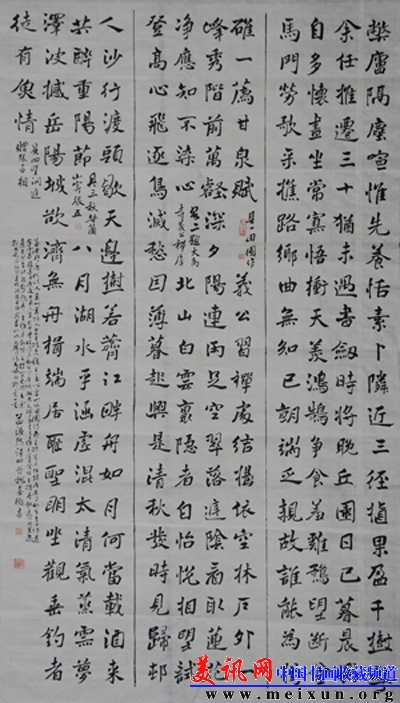 弊廬隔塵喧惟先養恬素卜隣近三徑植果盈千樹粤
余任推遷三十猶未遇書劍時將晚丘園日已暮晨
自多懷晝坐常寡悟衝天羨鴻鵠爭食羞雞鶩望斷金
馬門勞歌采樵路鄉曲無知己朝端乏親故誰能為
雄一薦甘泉賦 其一田園作 義公習禪處結構依空林戶外一
峰秀階前萬壑深夕陽連雨足空翠落庭陰看取蓮花
淨應知不染心 其二題大禹寺義公禪房 北山白雲裏隱者自怡悅相望試
登高心飛逐鳥滅愁因薄暮起興是清秋發時見歸邨
人沙行渡頭歇天邊樹若薺江畔舟如月何當載酒來
共醉重陽節 其三秋登蘭山寄張五 八月湖水平涵虛混太清氣蒸雲夢
澤波撼岳陽城欲濟無舟楫端居恥聖明坐觀垂釣者
徒有魚情 其四望洞庭贈張丞相
孟浩然詩四首
美讯网 中国书画收藏频道
www.meixun.org